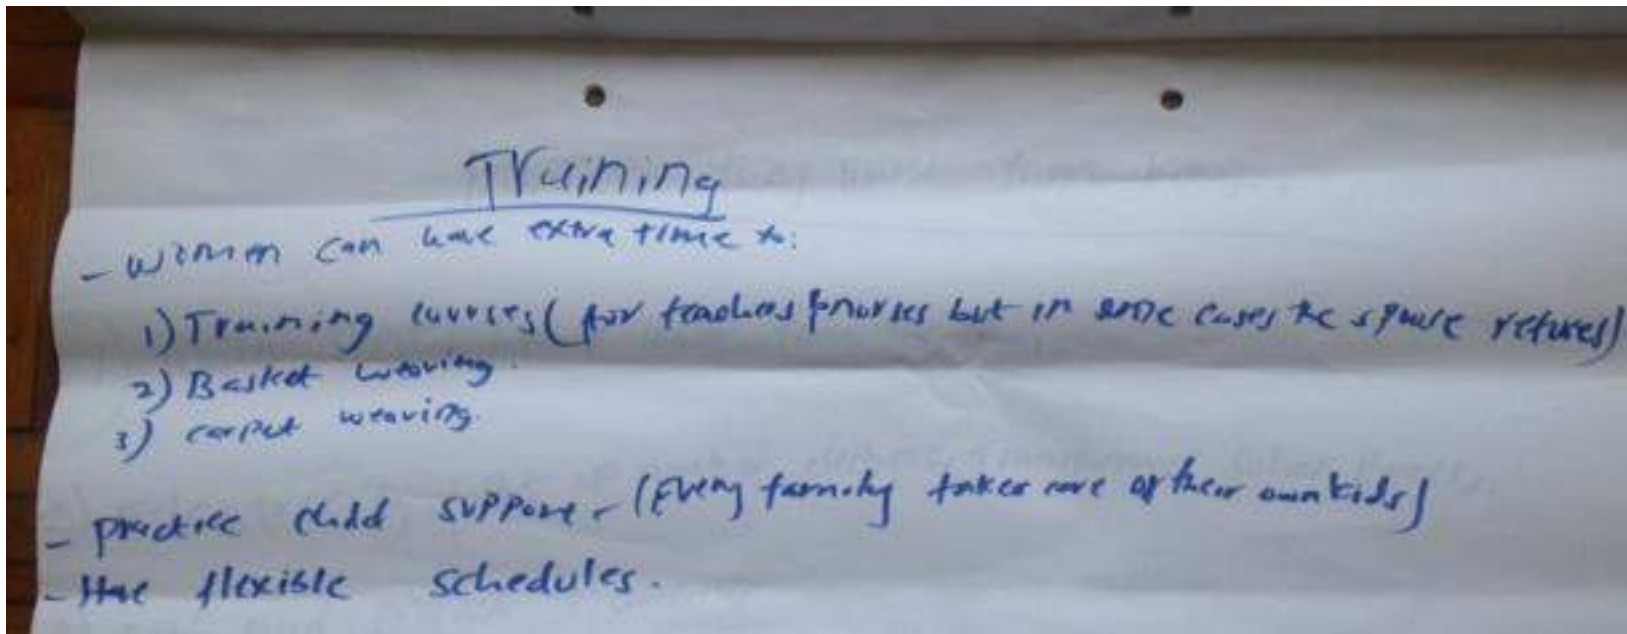 Training
- Women can have extra time to:
1) Training courses (for teachers & nurses but in some cases the spouse refuses)
2) Basket weaving.
3) carpet weaving.
- practice child support. (Every family takes care of their own kids)
- Have flexible schedules.